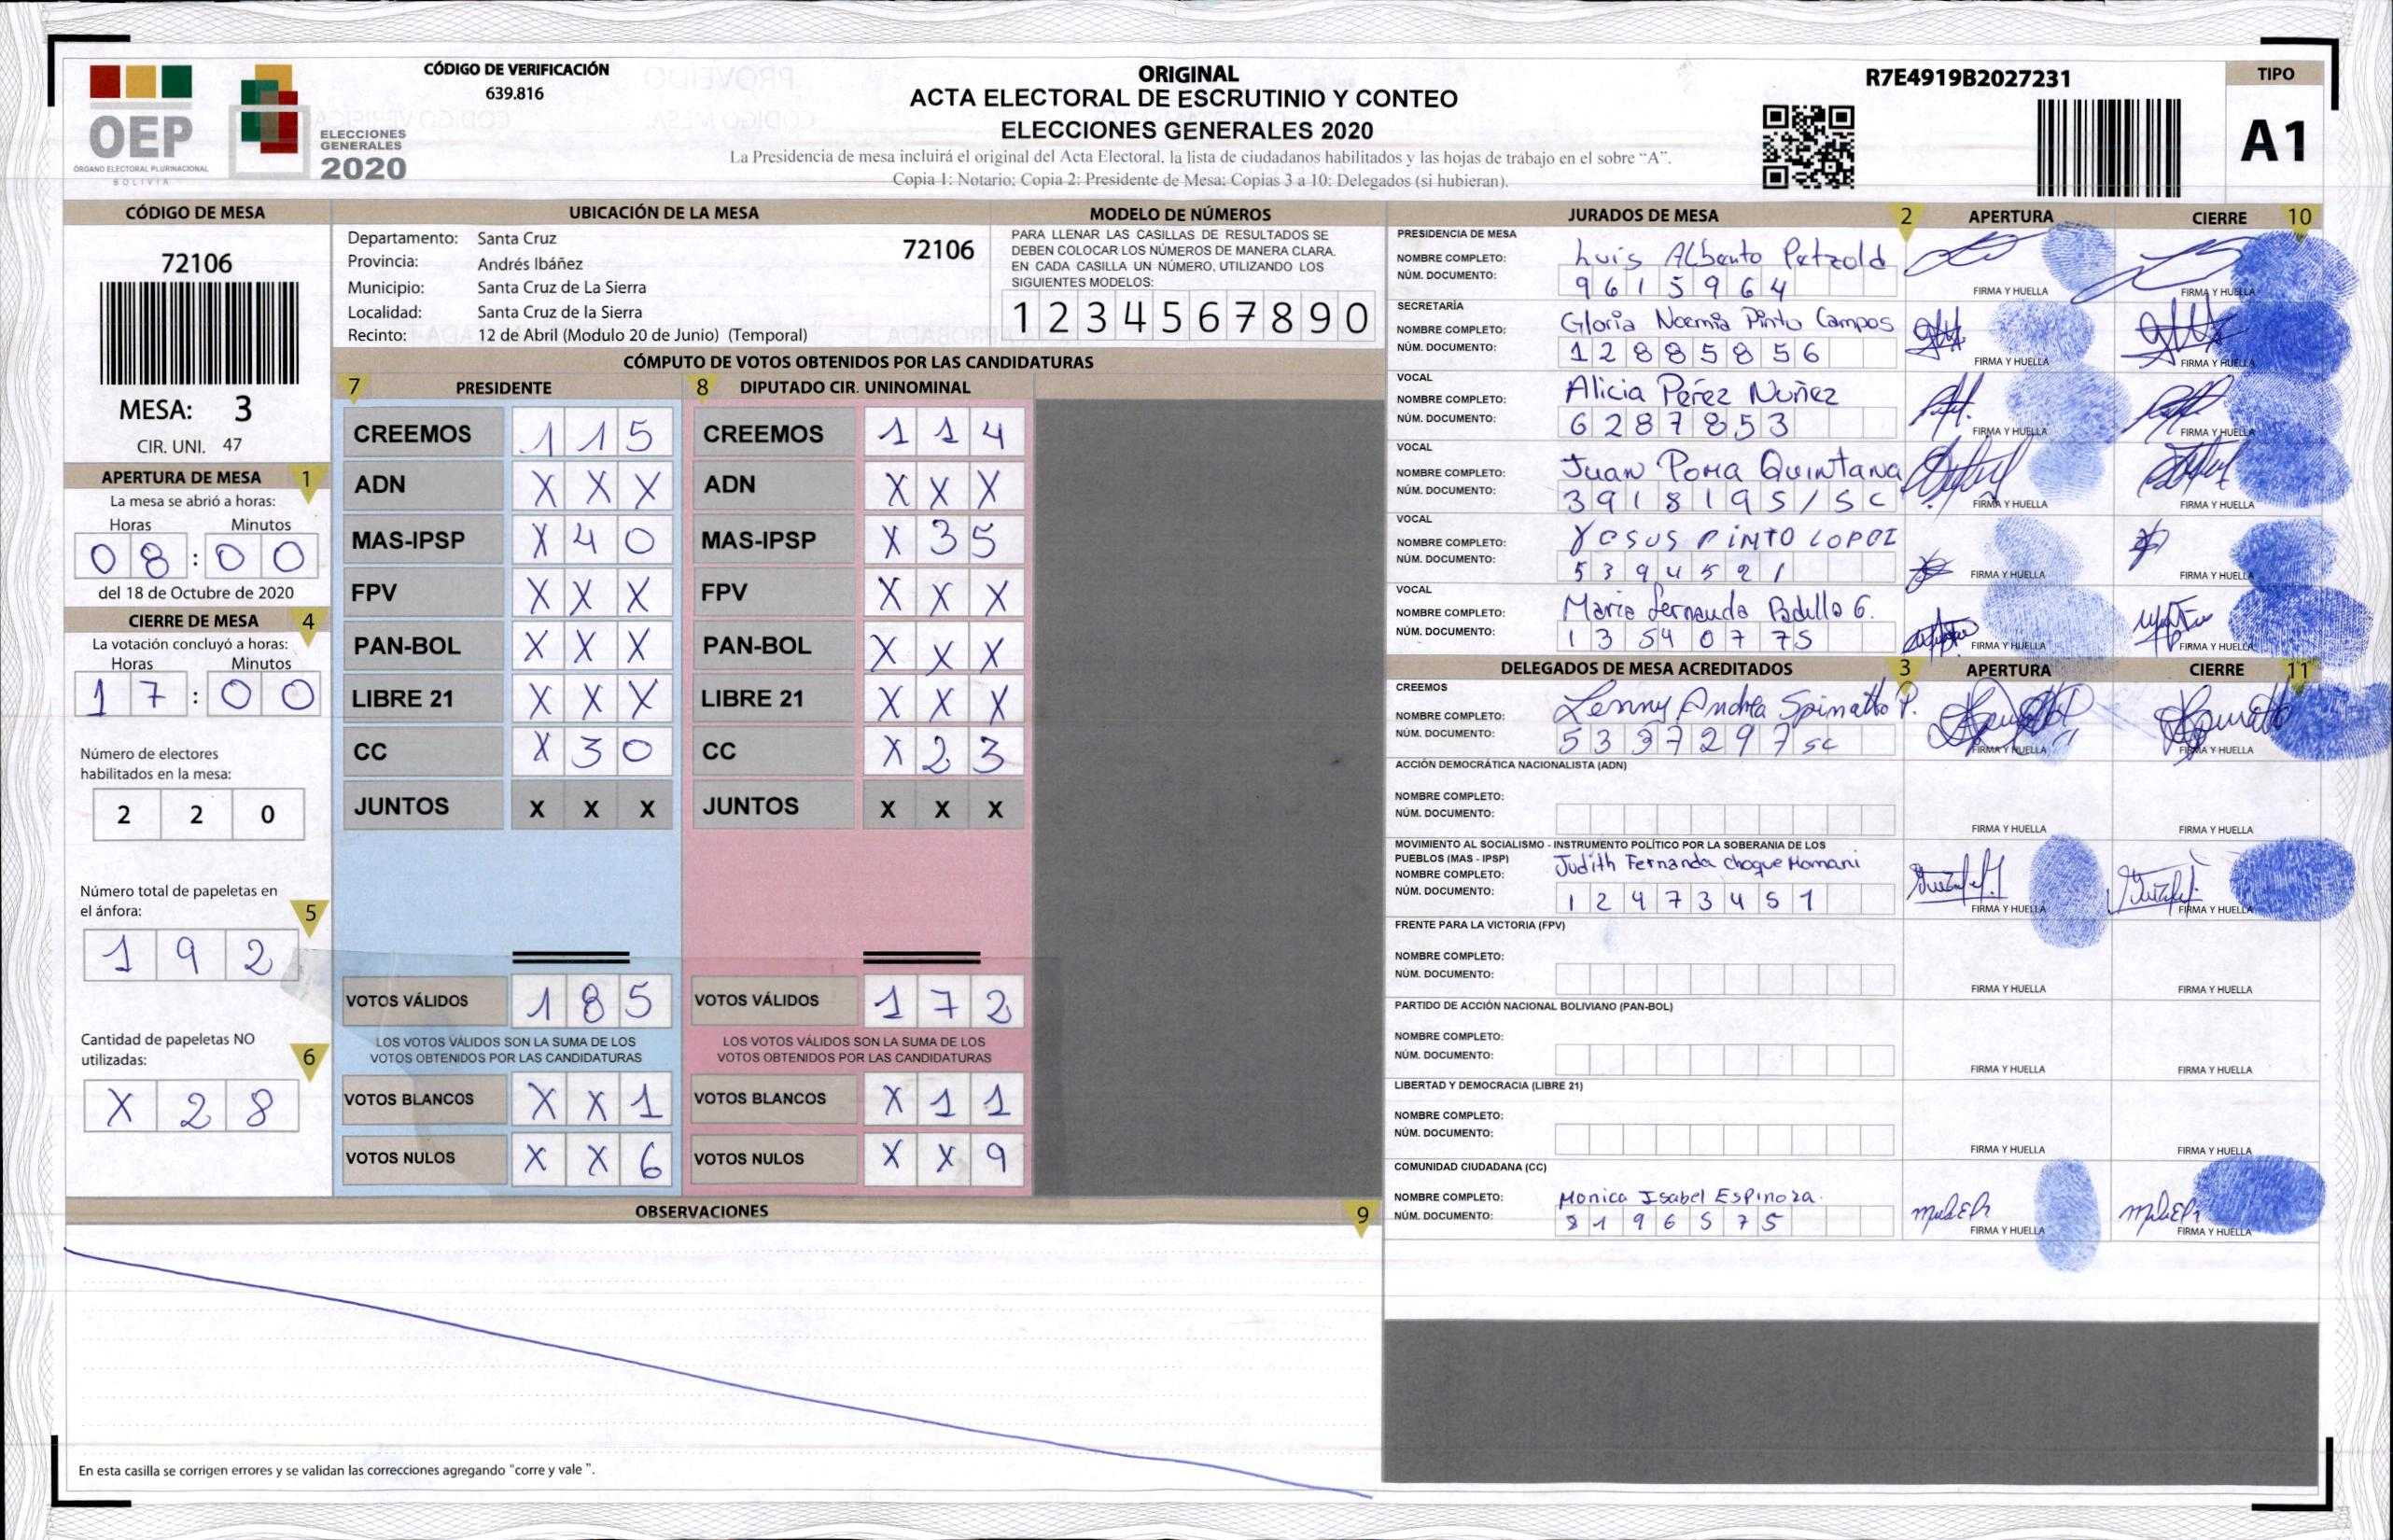 OEP
ÓRGANO ELECTORAL PLURINACIONAL
BOLIVIA
ELECCIONES
GENERALES
2020
CÓDIGO DE VERIFICACIÓN
639.816
ORIGINAL
ACTA ELECTORAL DE ESCRUTINIO Y CONTEO
ELECCIONES GENERALES 2020
La Presidencia de mesa incluirá el original del Acta Electoral, la lista de ciudadanos habilitados y las hojas de trabajo en el sobre “A”.
Copia 1: Notario; Copia 2: Presidente de Mesa; Copias 3 a 10: Delegados (si hubieran).
R7E4919B2027231
TIPO
A1
CÓDIGO DE MESA
72106
MESA: 3
CIR. UNI. 47
APERTURA DE MESA 1
La mesa se abrió a horas:
Horas Minutos
0 8 : 0 0
del 18 de Octubre de 2020
CIERRE DE MESA 4
La votación concluyó a horas:
Horas Minutos
1 7 : 0 0
Número de electores
habilitados en la mesa:
2 2 0
Número total de papeletas en
el ánfora: 5
1 9 2
Cantidad de papeletas NO
utilizadas: 6
X 2 8
UBICACIÓN DE LA MESA
Departamento: Santa Cruz 72106
Provincia: Andrés Ibáñez
Municipio: Santa Cruz de La Sierra
Localidad: Santa Cruz de la Sierra
Recinto: 12 de Abril (Modulo 20 de Junio) (Temporal)
MODELO DE NÚMEROS
PARA LLENAR LAS CASILLAS DE RESULTADOS SE
DEBEN COLOCAR LOS NÚMEROS DE MANERA CLARA.
EN CADA CASILLA UN NÚMERO, UTILIZANDO LOS
SIGUIENTES MODELOS:
1 2 3 4 5 6 7 8 9 0
CÓMPUTO DE VOTOS OBTENIDOS POR LAS CANDIDATURAS
7 PRESIDENTE 8 DIPUTADO CIR. UNINOMINAL
CREEMOS 1 1 5 CREEMOS 1 1 4
ADN X X X ADN X X X
MAS-IPSP X 4 0 MAS-IPSP X 3 5
FPV X X X FPV X X X
PAN-BOL X X X PAN-BOL X X X
LIBRE 21 X X X LIBRE 21 X X X
CC X 3 0 CC X 2 3
JUNTOS X X X JUNTOS X X X
VOTOS VÁLIDOS 1 8 5 VOTOS VÁLIDOS 1 7 2
LOS VOTOS VÁLIDOS SON LA SUMA DE LOS LOS VOTOS VÁLIDOS SON LA SUMA DE LOS
VOTOS OBTENIDOS POR LAS CANDIDATURAS VOTOS OBTENIDOS POR LAS CANDIDATURAS
VOTOS BLANCOS X X 1 VOTOS BLANCOS X 1 1
VOTOS NULOS X X 6 VOTOS NULOS X X 9
OBSERVACIONES 9
En esta casilla se corrigen errores y se validan las correcciones agregando “corre y vale ”.
JURADOS DE MESA 2 APERTURA CIERRE 10
PRESIDENCIA DE MESA
NOMBRE COMPLETO: Luis Alberto Petzold
NÚM. DOCUMENTO: 9 6 1 5 9 6 4
FIRMA Y HUELLA FIRMA Y HUELLA
SECRETARÍA
NOMBRE COMPLETO: Gloria Noemia Pinto Campos
NÚM. DOCUMENTO: 1 2 8 8 5 8 5 6
FIRMA Y HUELLA FIRMA Y HUELLA
VOCAL
NOMBRE COMPLETO: Alicia Pérez Nuñez
NÚM. DOCUMENTO: 6 2 8 7 8 5 3
FIRMA Y HUELLA FIRMA Y HUELLA
VOCAL
NOMBRE COMPLETO: Juan Poma Quintana
NÚM. DOCUMENTO: 3 9 1 8 1 9 5 / S C
FIRMA Y HUELLA FIRMA Y HUELLA
VOCAL
NOMBRE COMPLETO: PINTO
NÚM. DOCUMENTO: 5 3 9 4 5 2 1
FIRMA Y HUELLA FIRMA Y HUELLA
VOCAL
NOMBRE COMPLETO: Maria Fernanda Padilla G.
NÚM. DOCUMENTO: 1 3 5 4 0 7 7 5
FIRMA Y HUELLA FIRMA Y HUELLA
DELEGADOS DE MESA ACREDITADOS 3 APERTURA CIERRE 11
CREEMOS
NOMBRE COMPLETO: Lenny Andrea P.
NÚM. DOCUMENTO: 5 3 3 7 2 9 7 SC
FIRMA Y HUELLA FIRMA Y HUELLA
ACCIÓN DEMOCRÁTICA NACIONALISTA (ADN)
NOMBRE COMPLETO:
NÚM. DOCUMENTO:
FIRMA Y HUELLA FIRMA Y HUELLA
MOVIMIENTO AL SOCIALISMO - INSTRUMENTO POLÍTICO POR LA SOBERANIA DE LOS
PUEBLOS (MAS - IPSP)
NOMBRE COMPLETO: Judith Fernanda Choque Mamani
NÚM. DOCUMENTO: 1 2 4 7 3 4 5 1
FIRMA Y HUELLA FIRMA Y HUELLA
FRENTE PARA LA VICTORIA (FPV)
NOMBRE COMPLETO:
NÚM. DOCUMENTO:
FIRMA Y HUELLA FIRMA Y HUELLA
PARTIDO DE ACCIÓN NACIONAL BOLIVIANO (PAN-BOL)
NOMBRE COMPLETO:
NÚM. DOCUMENTO:
FIRMA Y HUELLA FIRMA Y HUELLA
LIBERTAD Y DEMOCRACIA (LIBRE 21)
NOMBRE COMPLETO:
NÚM. DOCUMENTO:
FIRMA Y HUELLA FIRMA Y HUELLA
COMUNIDAD CIUDADANA (CC)
NOMBRE COMPLETO: Monica Isabel Espinoza
NÚM. DOCUMENTO: 8 1 9 6 5 7 5
FIRMA Y HUELLA FIRMA Y HUELLA